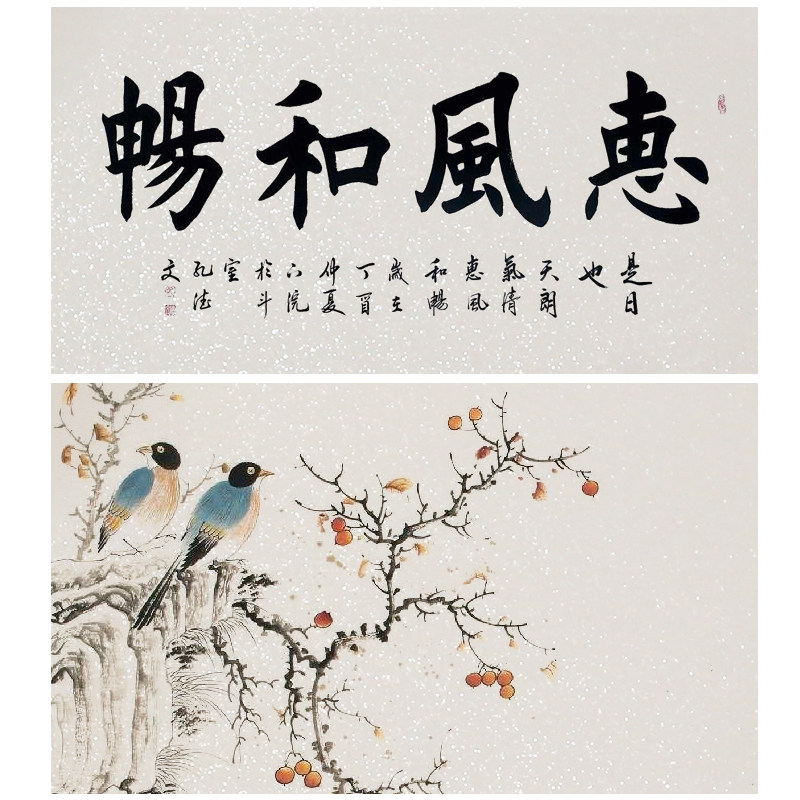 惠風和暢
是日
也
天朗
氣清
惠風
和暢
歲在
丁酉
仲夏
於斗
室
孔德
文